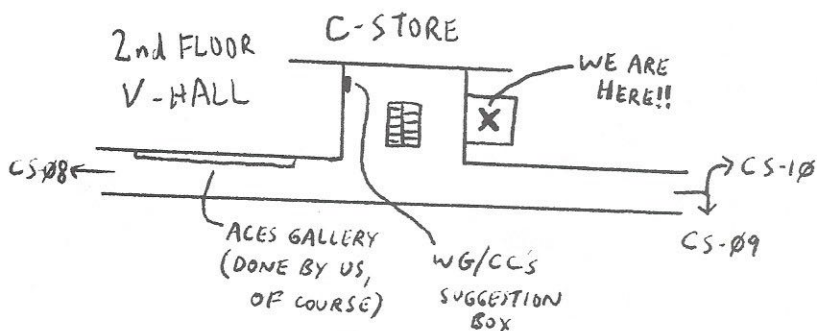 2nd FLOOR
V-HALL
C-STORE
WE ARE
HERE!!
X
CS-08
CS-10
CS-09
ACES GALLERY
(DONE BY US,
OF COURSE)
WG/CC's
SUGGESTION
BOX